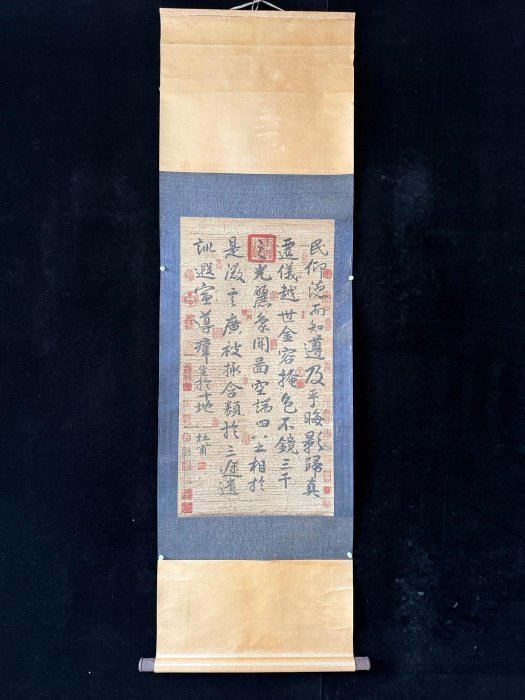 民仰德而知遵及乎晦影歸真
遷儀越世金容掩色不鏡三千
之光麗象開圖空端四八之相於
是微言廣被拯含類於三途遺
訓遐宣導群生於十地
杜甫